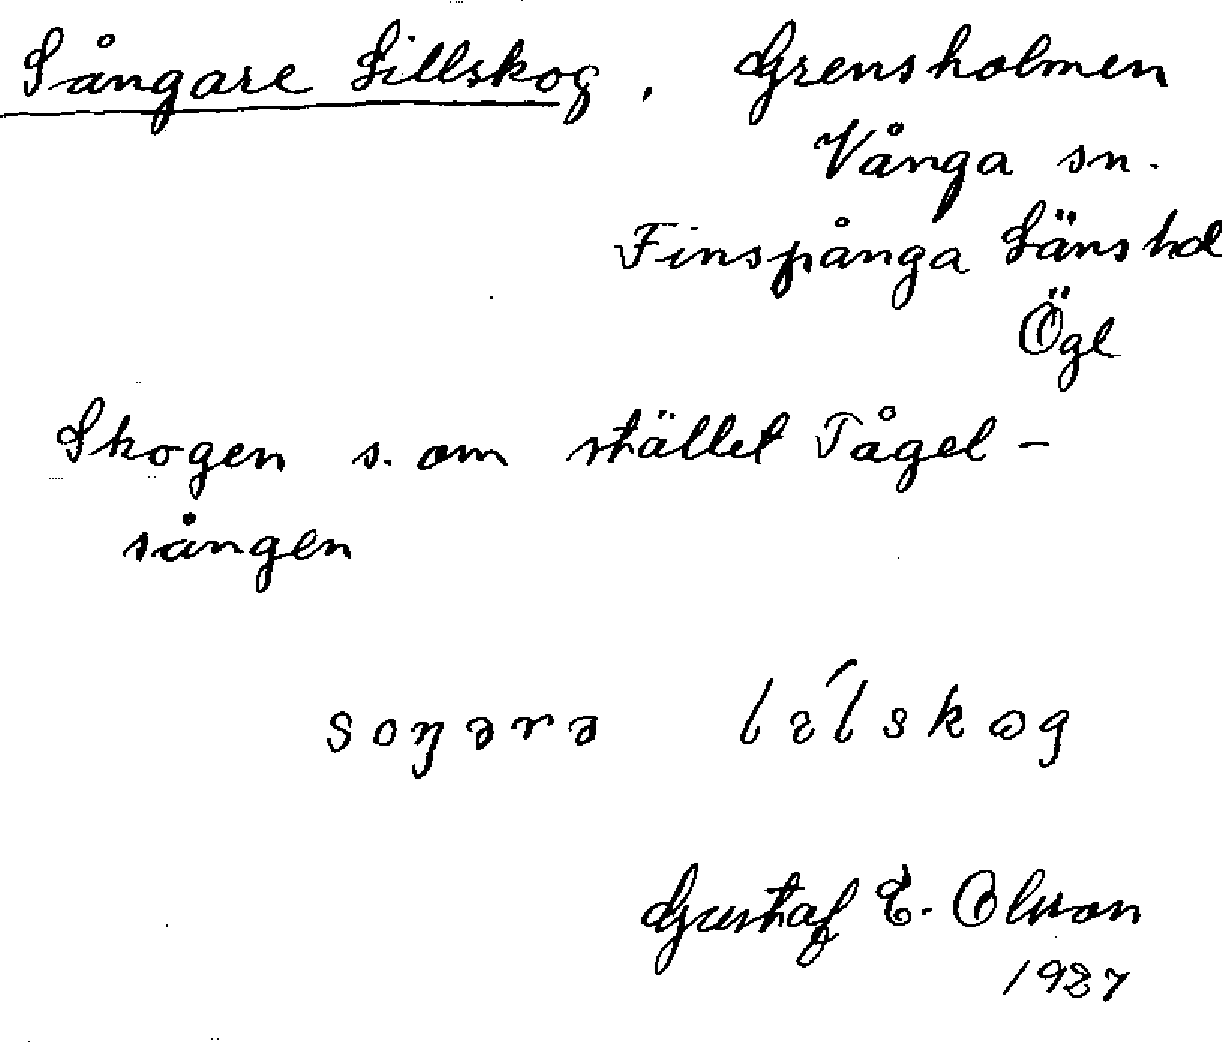 Sångare Lillskog, Grensholmen
Vånga sn.
Finspånga Länshd
Ögl
Skogen s. om stället Tågel-
sången
soŋərə lılskog
Gustaf E. Olsson
1927